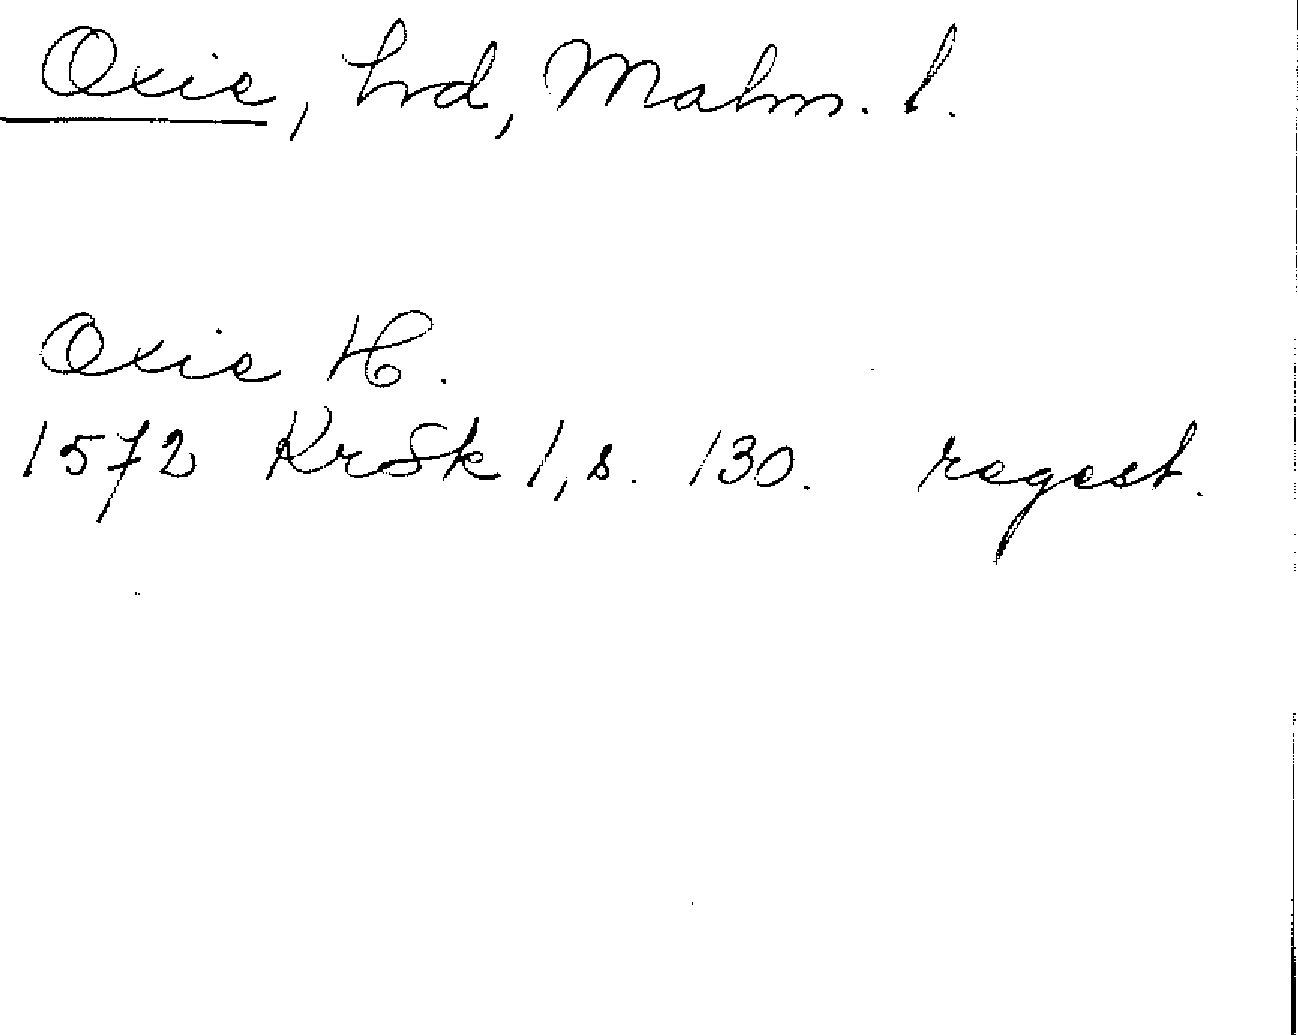 Oxie, hrd, Malm. l.
Oxie H.
1572 KrSk 1, s. 130. regest.